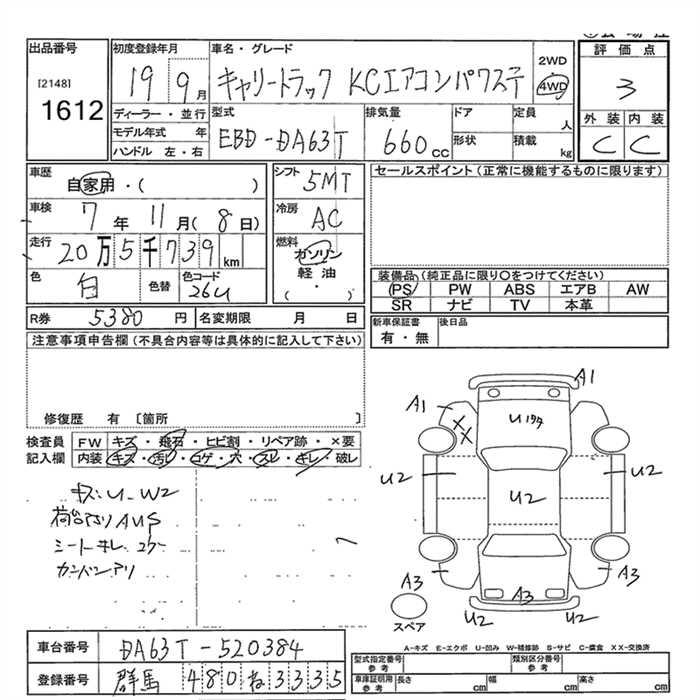 出品番号
[2148]
1612
初度登録年月
19 9月
車名・グレード
キャリートラック KCエアコンパワステ
2WD
4WD
評価点
3
ディーラー・並行
モデル年式 年
ハンドル 左・右
型式
EBD-DA63T
排気量
660cc
ドア
形状
定員
人
積載
kg
外装 内装
C C
車歴
自家用・( )
車検
7年11月(8日)
走行
20万5千739km
色
白
色替
色コード
26U
シフト
5MT
冷房
AC
燃料
ガソリン
軽油
( ・ )
セールスポイント(正常に機能するものに限ります)
装備品(純正品に限り○をつけてください)
PS PW ABS エアB AW
SR ナビ TV 本革
R券 5380円 名変期限 月 日
新車保証書
有・無
後日品
注意事項申告欄(不具合内容等は具体的に記入して下さい)
修復歴 有 [箇所 ]
検査員
記入欄
FW キズ・飛石・ヒビ割・リペア跡・×要
内装 キズ・汚レ・コゲ・穴・スレ・キレ・破レ
キズ:U-W2
荷台アオリAUS
シートキレ コゲ
カンバンアリ
A1
A1
XX
U
U2
U2
U2
A3
A3
A3
U2
U2
スペア
A-キズ E-エクボ U-凹み W-補修跡 S-サビ C-腐食 XX-交換済
車台番号 DA63T-520384
登録番号 群馬 480 ね 3335
型式指定番号
参考
類別区分番号
参考
車庫証明用
参考
長さ cm
幅 cm
高さ cm